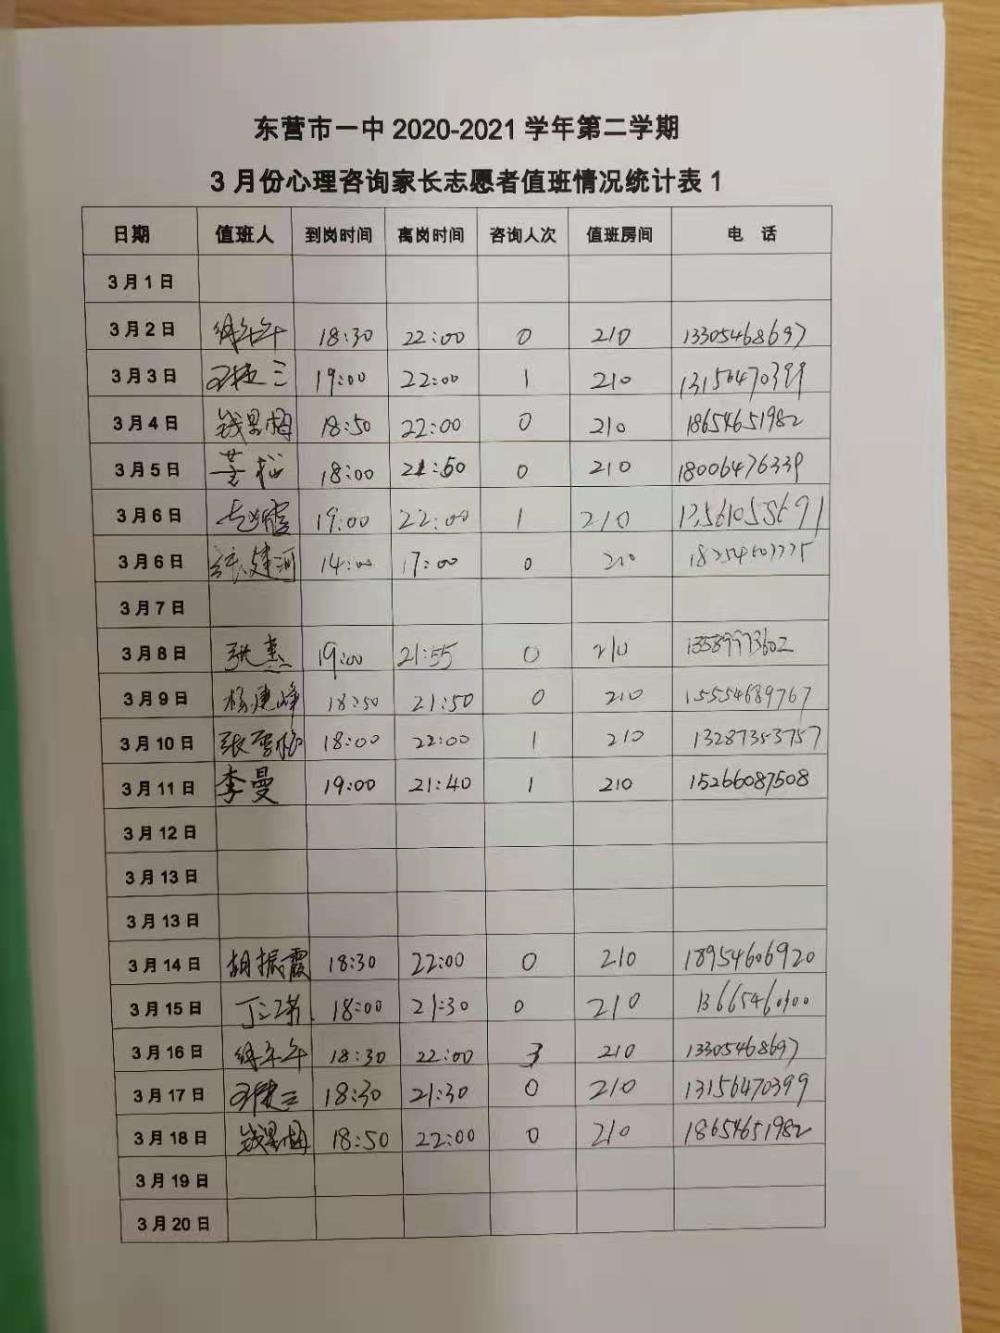 东营市一中 2020-2021 学年第二学期
3 月份心理咨询家长志愿者值班情况统计表 1
日期 值班人 到岗时间 离岗时间 咨询人次 值班房间 电 话
3 月 1 日
3 月 2 日 18:30 22:00 0 210 13305468697
3 月 3 日 19:00 22:00 1 210 13156470399
3 月 4 日 钱思梅 18:50 22:00 0 210 18654651982
3 月 5 日 18:00 21:50 0 210 18006476339
3 月 6 日 19:00 22:00 1 210 13561055691
3 月 6 日 张建河 14:00 17:00 0 210
3 月 7 日
3 月 8 日 张惠 19:00 21:55 0 210 13589973602
3 月 9 日 杨建峰 18:50 21:50 0 210 15554689767
3 月 10 日 18:00 22:00 1 210 13287353757
3 月 11 日 李曼 19:00 21:40 1 210 15266087508
3 月 12 日
3 月 13 日
3 月 13 日
3 月 14 日 胡振霞 18:30 22:00 0 210 18954606920
3 月 15 日 18:00 21:30 0 210
3 月 16 日 18:30 22:00 3 210 13305468697
3 月 17 日 18:30 21:30 0 210 13156470399
3 月 18 日 钱思梅 18:50 22:00 0 210 18654651982
3 月 19 日
3 月 20 日